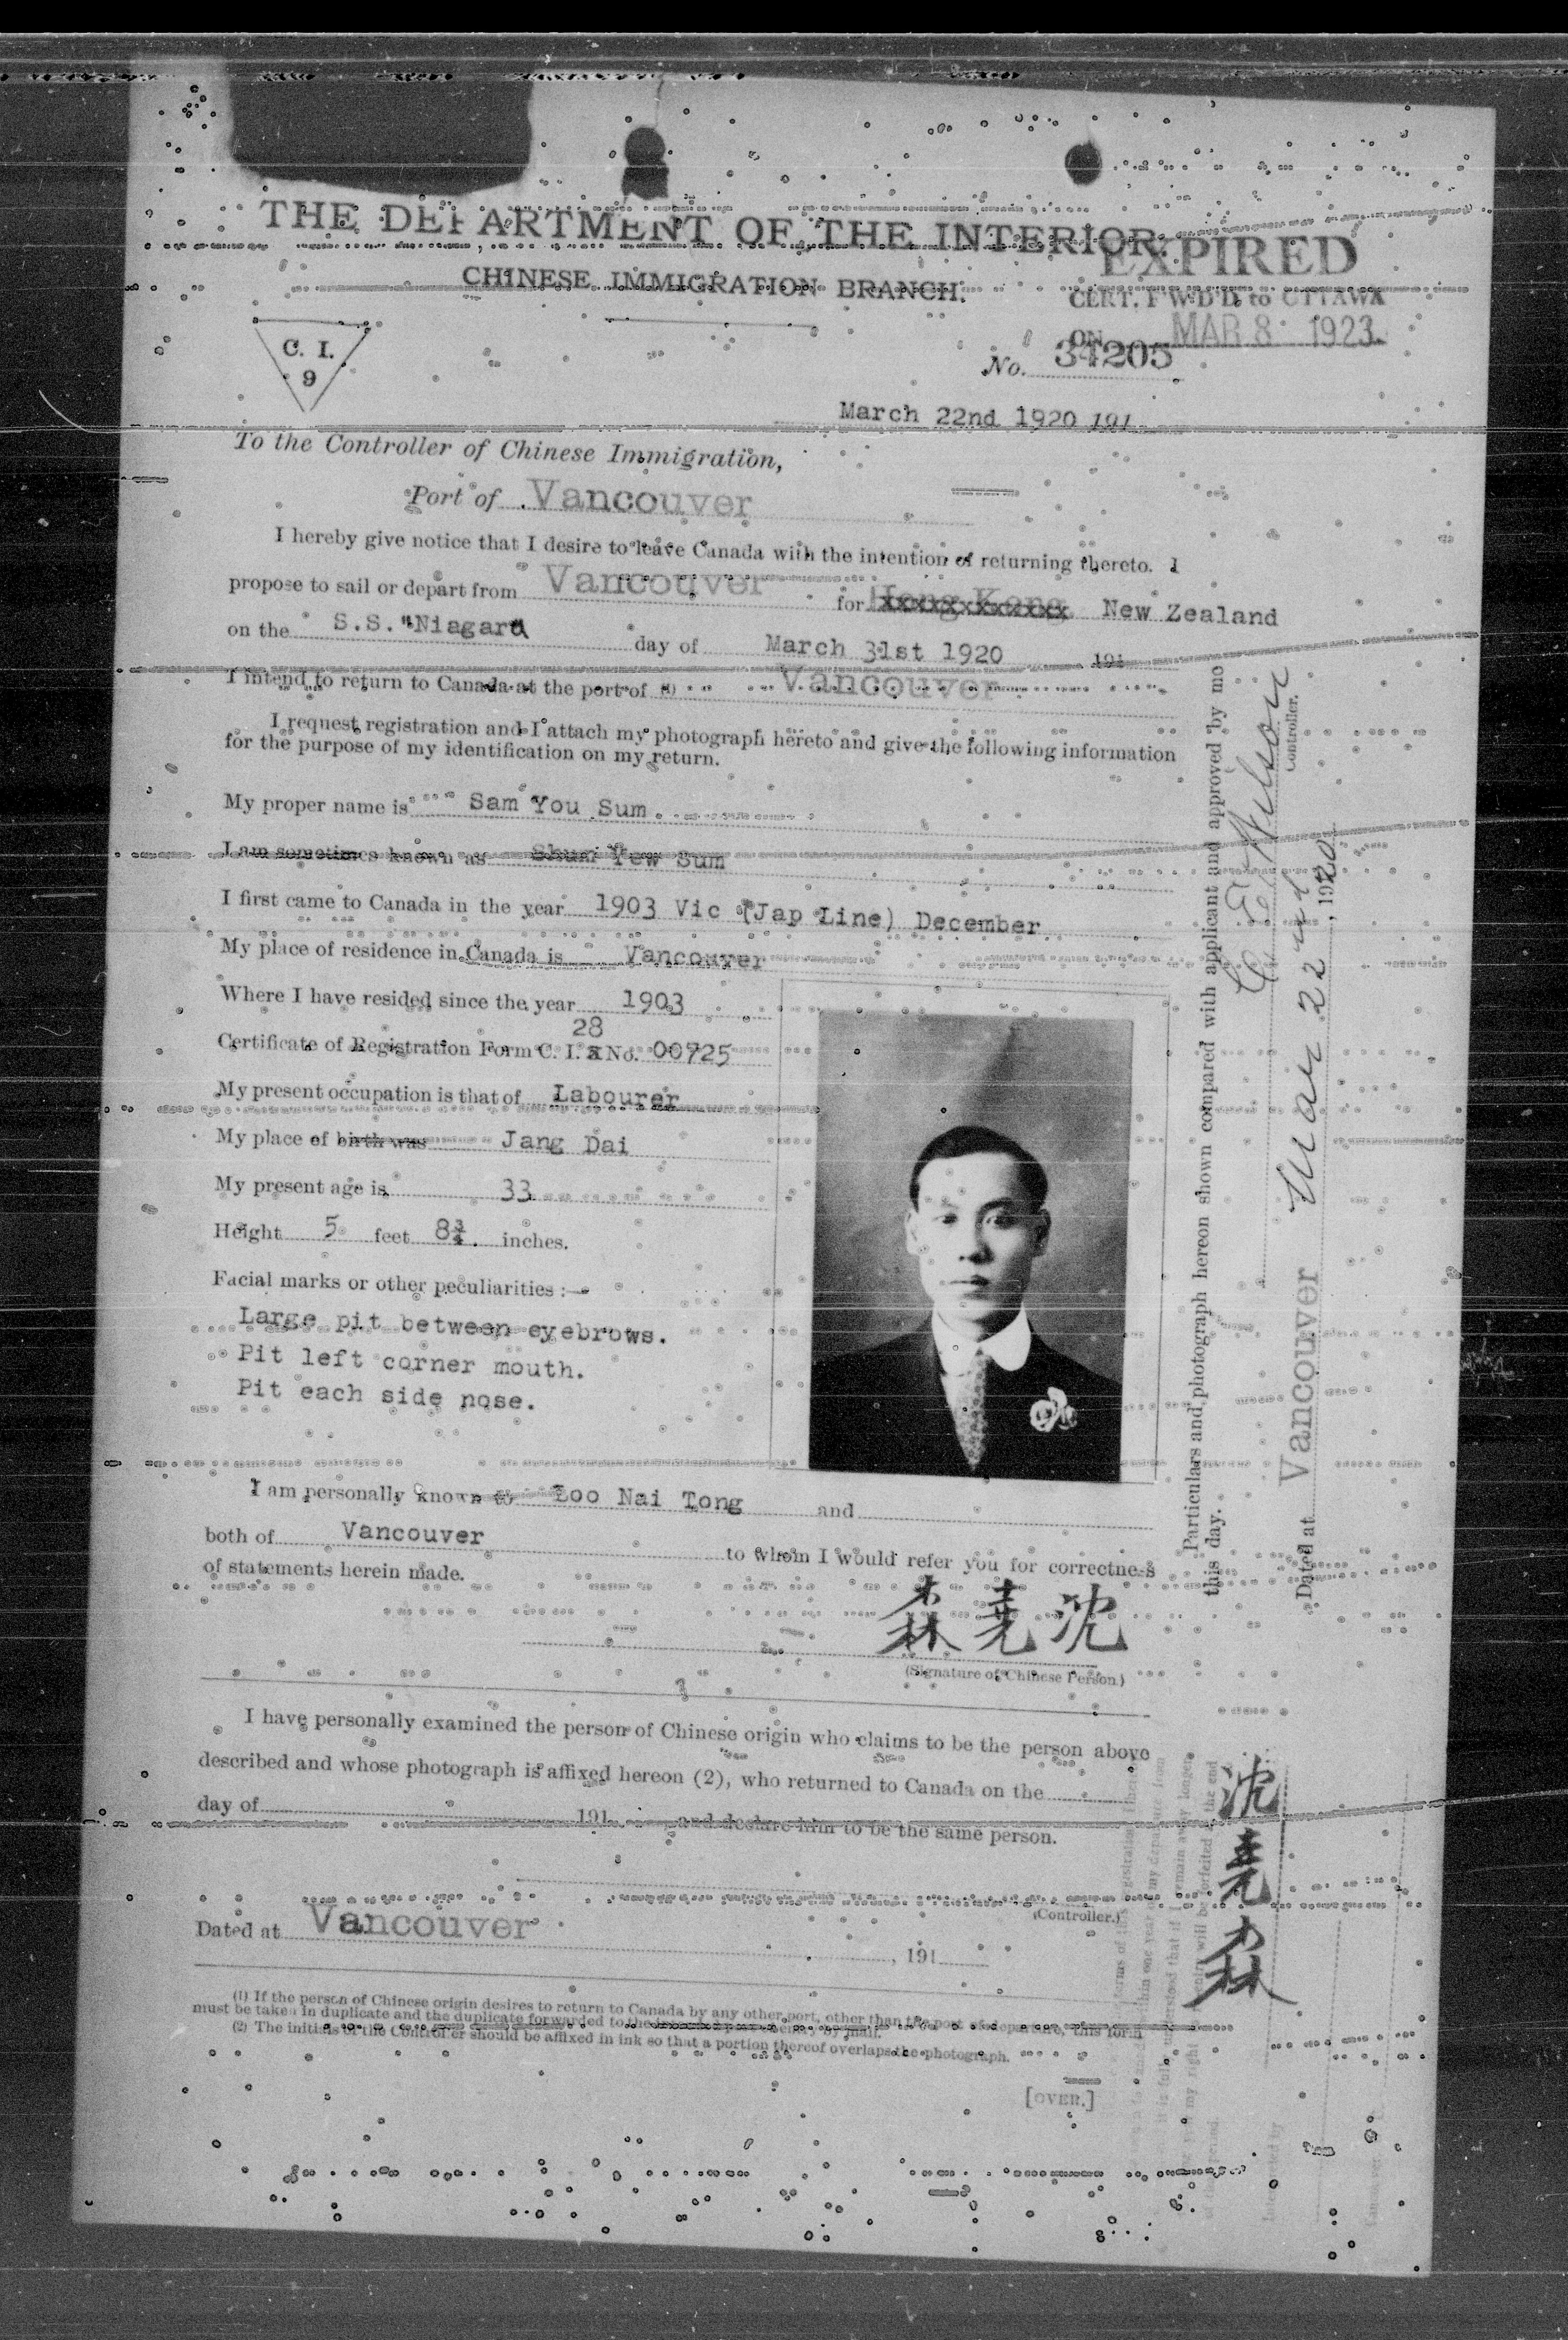 THE DEPARTMENT OF THE INTERIOR
CHINESE IMMIGRATION BRANCH.
EXPIRED
CERT. FWD'D to OTTAWA
ON MAR 8 1923.
C. I.
9
No. 34205
March 22nd 1920 191
To the Controller of Chinese Immigration,
Port of Vancouver
I hereby give notice that I desire to leave Canada with the intention of returning thereto. I
propose to sail or depart from Vancouver for Hong Kong New Zealand
on the S.S. "Niagara day of March 31st 1920 191
I intend to return to Canada at the port of (1) Vancouver
I request registration and I attach my photograph hereto and give the following information
for the purpose of my identification on my return.
My proper name is Sam You Sum
I am sometimes known as Shum Yew Sum
I first came to Canada in the year 1903 Vic (Jap Line) December
My place of residence in Canada is Vancouver
Where I have resided since the year 1903
28
Certificate of Registration Form C. I. x No. 00725
My present occupation is that of Labourer
My place of birth was Jang Dai
My present age is 33
Height 5 feet 8¾ inches.
Facial marks or other peculiarities :—
Large pit between eyebrows.
Pit left corner mouth.
Pit each side nose.
I am personally known to Loo Nai Tong and
both of Vancouver to whom I would refer you for correctness
of statements herein made.
森堯沈
(Signature of Chinese Person)
I have personally examined the person of Chinese origin who claims to be the person above
described and whose photograph is affixed hereon (2), who returned to Canada on the
day of 191 and declare him to be the same person.
(Controller.)
Dated at Vancouver , 191
(1) If the person of Chinese origin desires to return to Canada by any other port, other than the port of departure, this form
must be taken in duplicate and the duplicate forwarded to the by mail.
(2) The initials of the Controller should be affixed in ink so that a portion thereof overlaps the photograph.
[OVER.]
Particulars and photograph hereon shown compared with applicant and approved by me
this day.
Wilson
Controller.
Dated at Vancouver Mar 22nd , 1920
沈堯森